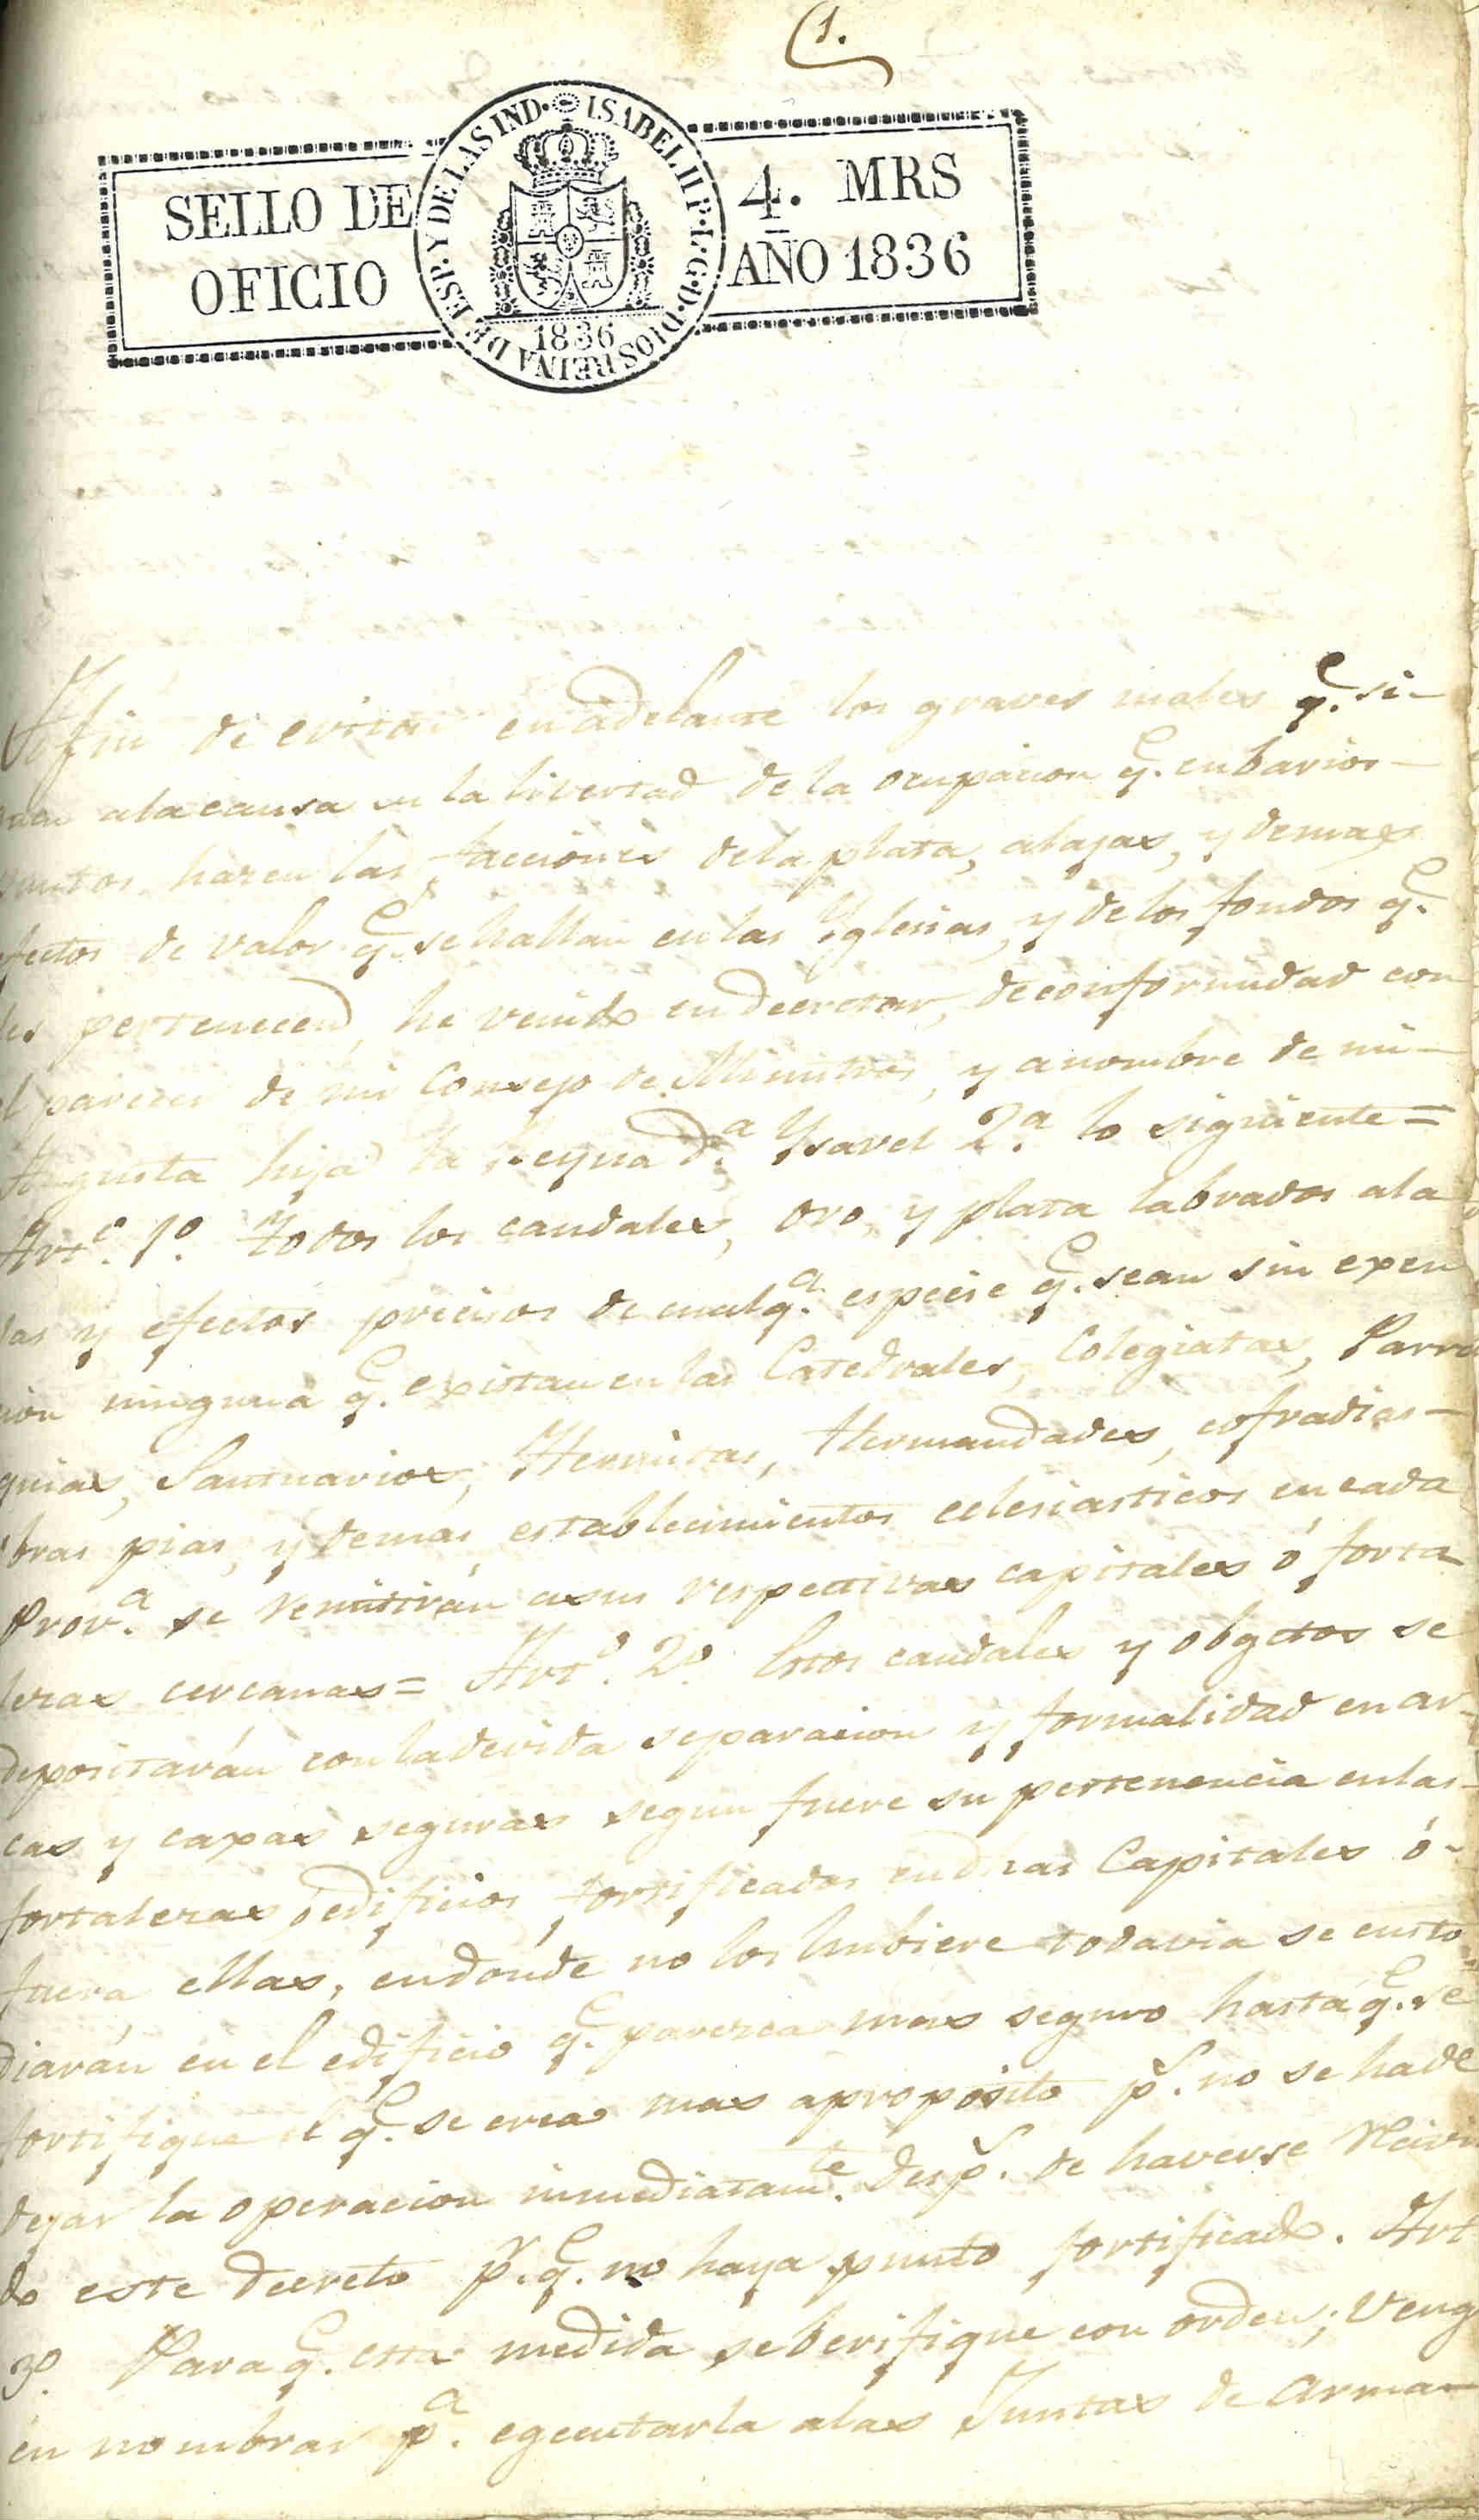 1.
SELLO DE
OFICIO
ISABEL II P. L. G. D. DIOS REINA DE ESP. Y DE LAS IND.
1836
4. MRS
AÑO 1836
Afin de evitar en adelante los graves males q.e si-
ala causa de la livertad de la ocupacion q.e en barios-
puntos hacen las facciones dela plata, alajas, y demas
efectos de valor q.e se hallan en las Yglesias, y de los fondos q.e
les pertenecen, he venido en decretar, de conformidad con
el parecer de mi Consejo de Ministros, y a nombre de mi-
Augusta hija la Reyna d.a Ysavel 2.a lo siguiente=
Art.o 1.o Todos los caudales, oro, y plata labrados ala
jas y efectos precisos de cualq.a especie q.e sean sin excep
cion ninguna q.e existan en las Catedrales, Colegiatas, Parro
quias, Santuarios, Hermitas, Hermandades, cofradias-
obras pias, y demas establecimientos eclesiasticos en cada
Prov.a se remitirán asus respectivas capitales ó forta
lezas cercanas= Art.o 2.o Estos caudales y obgetos se
depositarán con la devida separacion y formalidad en ar-
cas y caxas seguras segun fuere su pertenencia en las-
fortalezas, ó edificios fortificados en dhas Capitales ó-
fuera ellas, en donde no los hubiere todavia se custo-
diarán en el edificio q.e parezca mas seguro hasta q.e se
fortifique el q.e se crea mas aproposito p.s no se ha de
dejar la operacion inmediatam.te desp.s de haverse recivi
do este decreto p.r q.e no haya punto fortificado. Art
3.o Para q.e esta medida se berifique con orden, Veng
en nombrar p.a egecutarla alas Juntas de Arma-